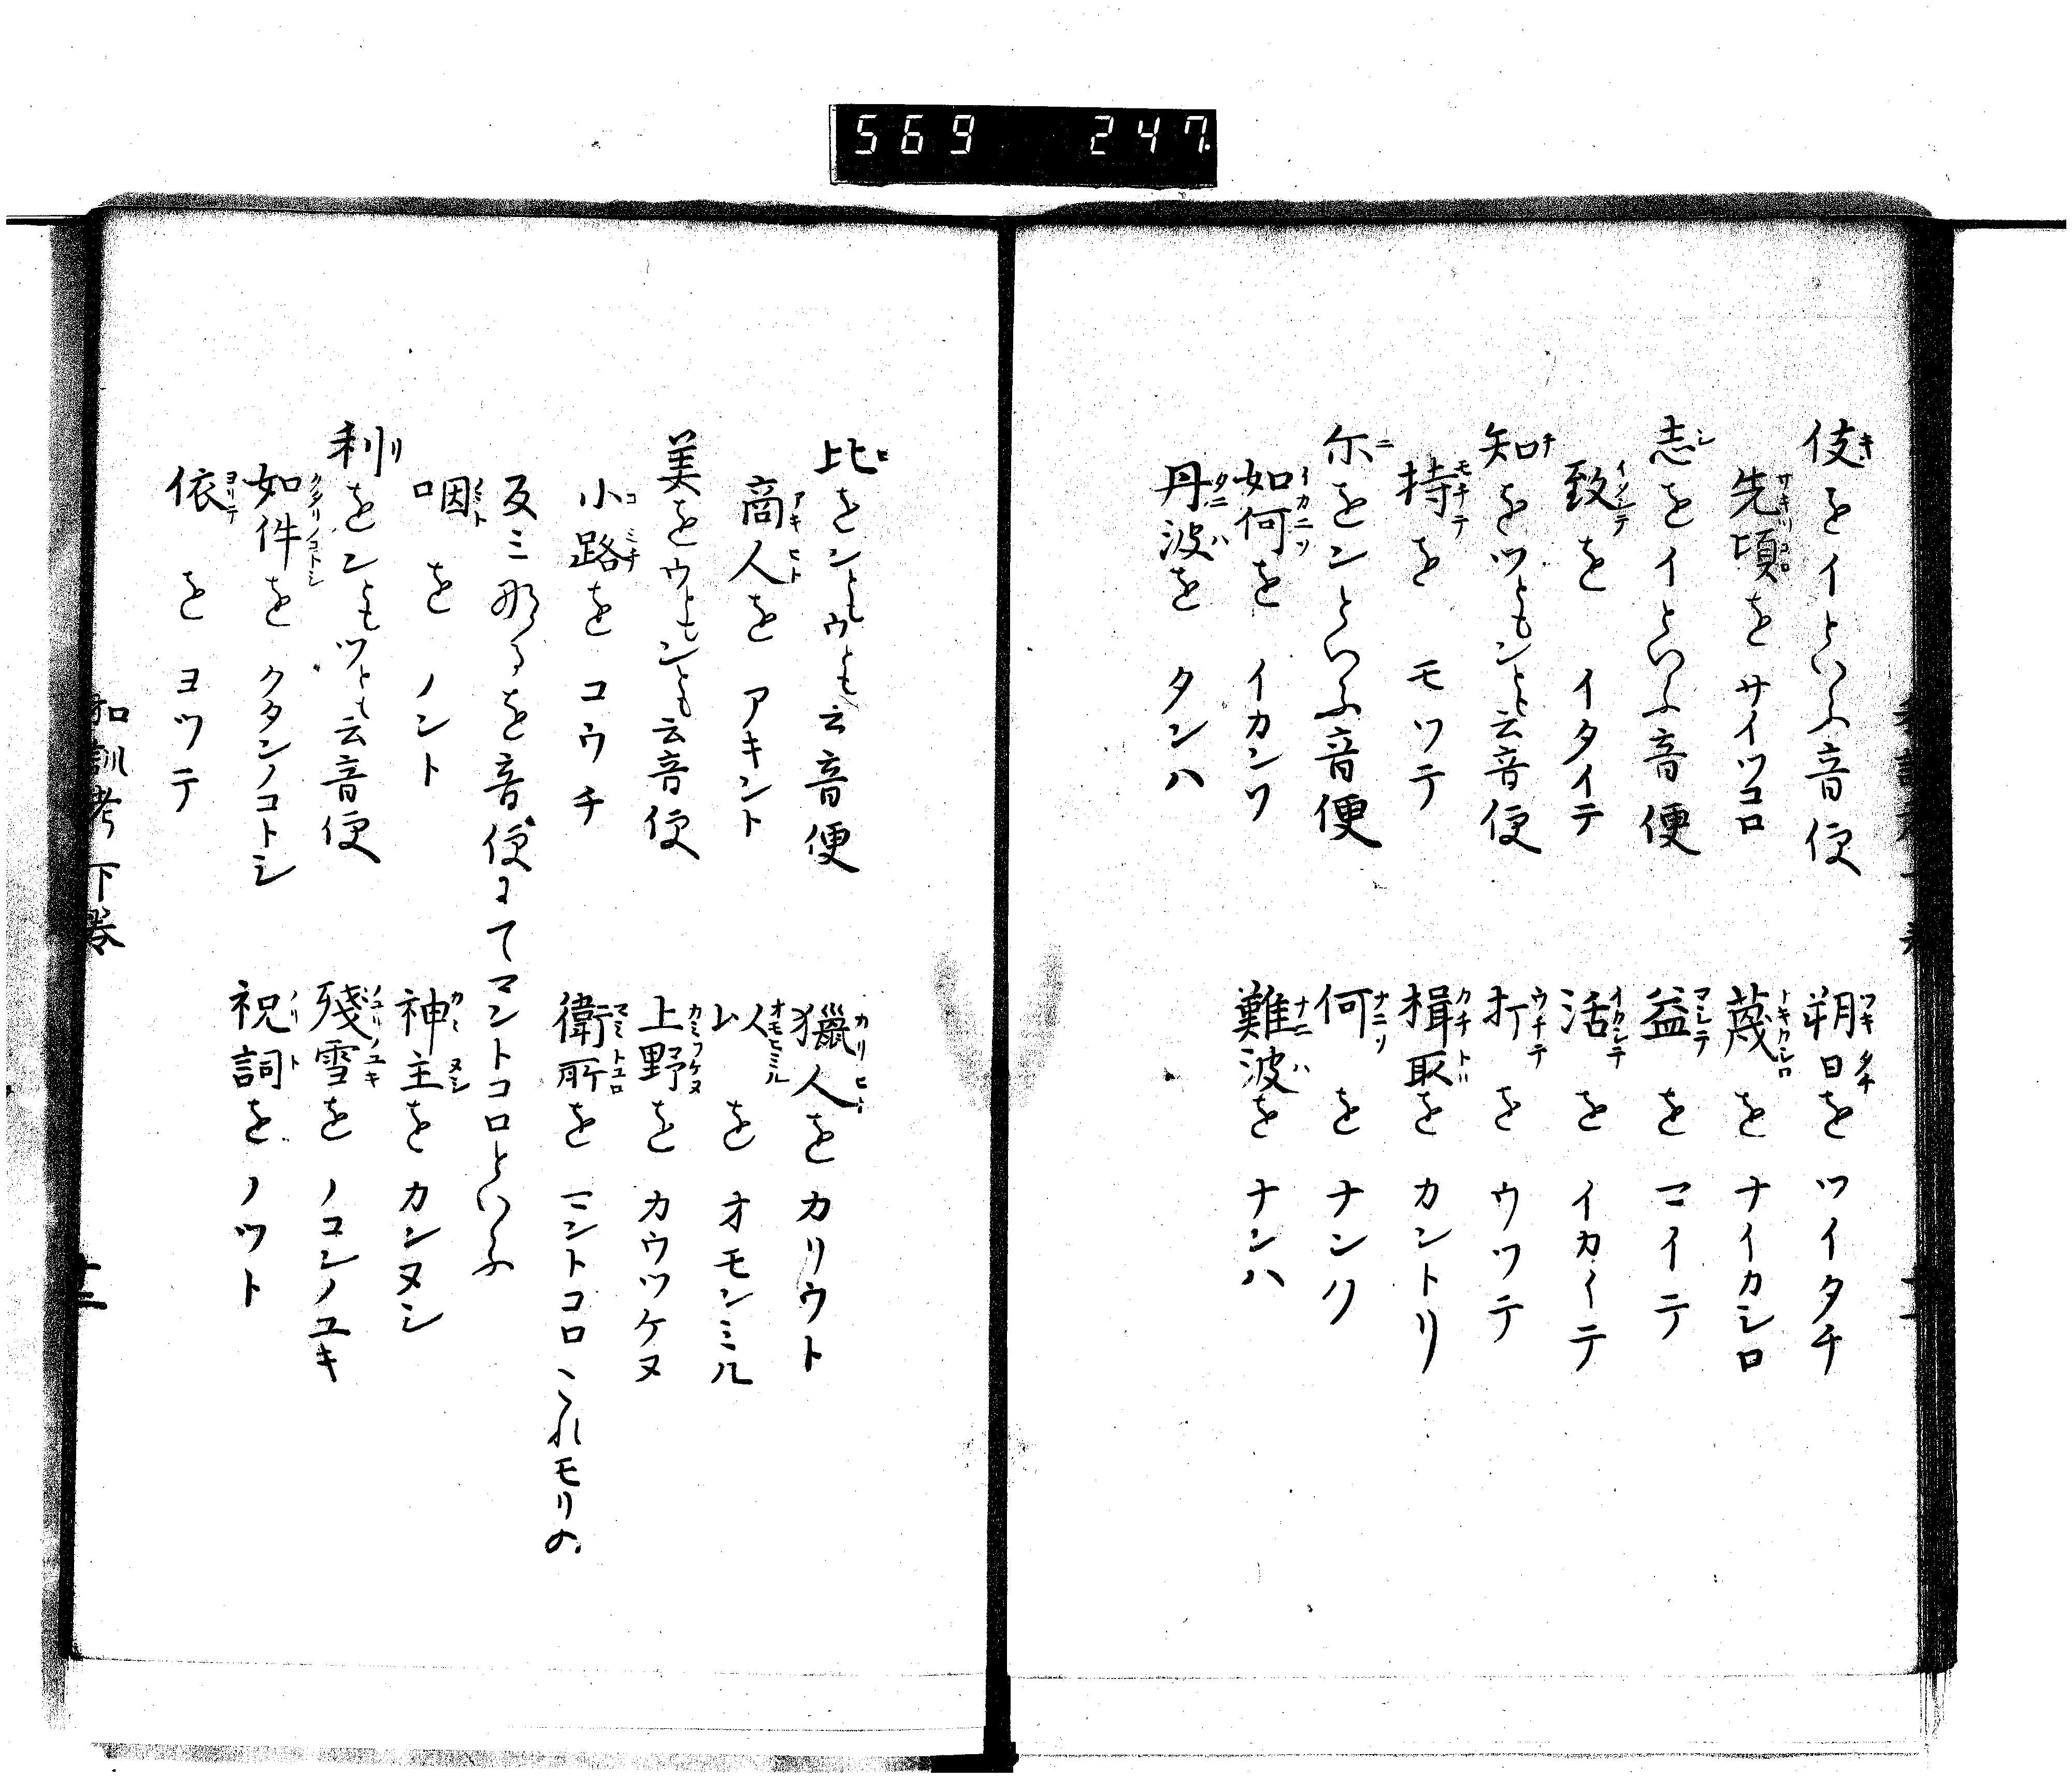 569 247
伎をイといふ音便
先頃をサイツコロ 朔日をツイタチ
志をイといふ音便 蔑をナイカシロ
致をイタイテ 益をマイテ
知をツともンとも云音便 活をイカイテ
持をモツテ 打をウツテ
尓をンといふ音便 楫取をカントリ
如何をイカンソ 何をナンソ
丹波をタンハ 難波をナンハ
比をンともウとも云音便
商人をアキント 獵人をカリウト
美をウともンとも云音便 以をオモンミル
小路をコウチ 上野をカウツケヌ
衛所をマントコロこれモリの
反ミ那るを音便にてマントコロといふ
咽をノント 神主をカンヌシ
利をンともツとも云音便
如件をクタンノコトシ 殘雪をノコンノユキ
依をヨツテ 祝詞をノツト
和訓考下巻